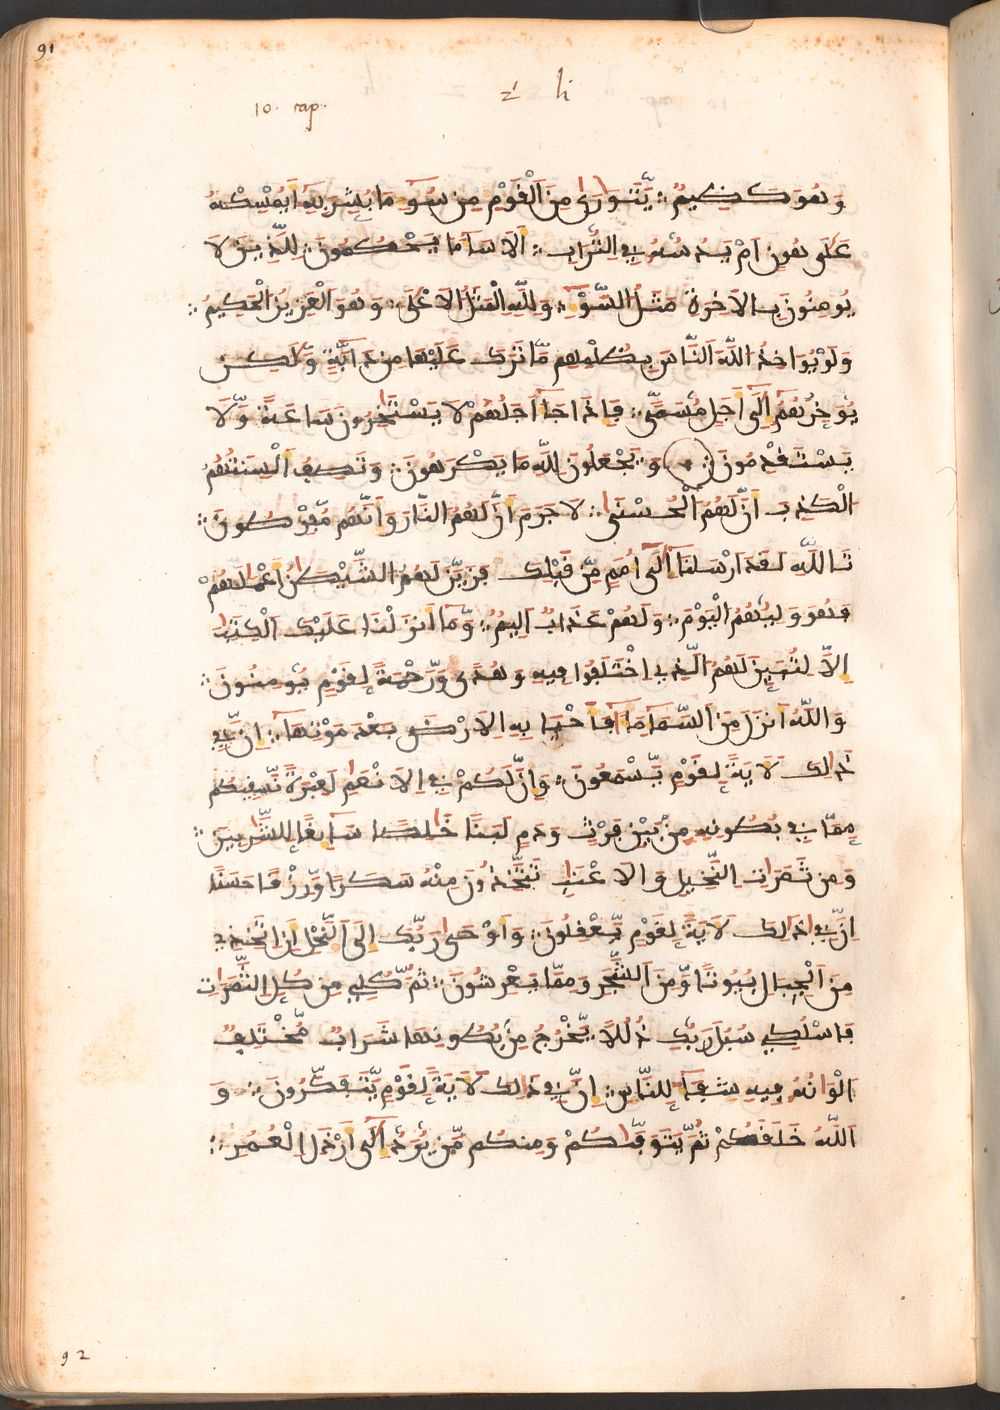 91
10. cap.
2 li
وَهُوَ كَظِيمٌ ؞ يَتَوَٰرَىٰ مِنَ اَلْقَوْمِ مِن سُوٓءِ مَا بُشِّرَ بِهِۦٓ أَيُمْسِكُهُۥ
عَلَىٰ هُونٍ اَمْ يَدُسُّهُۥ فِى اِلتُّرَابِ ؞ اَلَا سَآءَ مَا يَحْكُمُونَ ؞ لِلَّذِينَ لَا
يُومِنُونَ بِالَاخِرَةِ مَثَلُ السَّوْءِ ؞ وَلِلَّهِ اِلْمَثَلُ الَاعْلَىٰ ؞ وَهُوَ اَلْعَزِيزُ الْحَكِيمُ ؞
وَلَوْ يُوَاخِذُ اللَّهُ اُلنَّاسَ بِظُلْمِهِم مَّا تَرَكَ عَلَيْهَا مِن دَآبَّةٍ وَلَٰكِنْ
يُوَخِّرُهُمُۥٓ إِلَىٰٓ أَجَلٍ مُّسَمًّى ؞ فَإِذَا جَآءَ اجَلُهُمْ لَا يَسْتَٰخِرُونَ سَاعَةً وَلَا
يَسْتَقْدِمُونَ ؞ وَيَجْعَلُونَ لِلَّهِ مَا يَكْرَهُونَ ؞ وَتَصِفُ أَلْسِنَتُهُمُ
الْكَذِبَ أَنَّ لَهُمُ الْحُسْنَىٰ ؞ لَا جَرَمَ أَنَّ لَهُمُ النَّارَ وَأَنَّهُم مُّفْرِطُونَ ؞
تَاللَّهِ لَقَدَ اَرْسَلْنَآ إِلَىٰٓ أُمَمٍ مِّن قَبْلِكَ فَزَيَّنَ لَهُمُ الشَّيْطَٰنُ أَعْمَٰلَهُمْ
فَهُوَ وَلِيُّهُمُ الْيَوْمَ ؞ وَلَهُمْ عَذَابٌ اَلِيمٌ ؞ وَمَآ أَنزَلْنَا عَلَيْكَ اَلْكِتَٰبَ
إِلَّا لِتُبَيِّنَ لَهُمُ الَّذِى اِخْتَلَفُوا فِيهِ وَهُدًى وَرَحْمَةً لِّقَوْمٍ يُومِنُونَ ؞
وَاللَّهُ أَنزَلَ مِنَ اَلسَّمَآءِ مَآءً فَأَحْيَا بِهِ اِلَارْضَ بَعْدَ مَوْتِهَآ ؞ إِنَّ فِى
ذَٰلِكَ لَأٓيَةً لِّقَوْمٍ يَسْمَعُونَ ؞ وَإِنَّ لَكُمْ فِى اِلَانْعَٰمِ لَعِبْرَةً نَّسْقِيكُم
مِّمَّا فِى بُطُونِهِۦ مِنۢ بَيْنِ فَرْثٍ وَدَمٍ لَّبَنًا خَالِصًا سَآئِغًا لِّلشَّٰرِبِينَ ؞
وَمِن ثَمَرَٰتِ اِلنَّخِيلِ وَالَاعْنَٰبِ تَتَّخِذُونَ مِنْهُ سَكَرًا وَرِزْقًا حَسَنًا
إِنَّ فِى ذَٰلِكَ لَأٓيَةً لِّقَوْمٍ يَعْقِلُونَ ؞ وَأَوْحَىٰ رَبُّكَ إِلَى اَلنَّحْلِ أَنِ اِتَّخِذِى
مِنَ اَلْجِبَالِ بُيُوتًا وَمِنَ اَلشَّجَرِ وَمِمَّا يَعْرِشُونَ ؞ ثُمَّ كُلِى مِن كُلِّ اِلثَّمَرَٰتِ
فَاسْلُكِى سُبُلَ رَبِّكِ ذُلُلًا يَخْرُجُ مِنۢ بُطُونِهَا شَرَابٌ مُّخْتَلِفٌ
اَلْوَٰنُهُۥ فِيهِ شِفَآءٌ لِّلنَّاسِ ؞ إِنَّ فِى ذَٰلِكَ لَأٓيَةً لِّقَوْمٍ يَتَفَكَّرُونَ ؞ وَ
اَللَّهُ خَلَقَكُمْ ثُمَّ يَتَوَفَّىٰكُمْ وَمِنكُم مَّنْ يُّرَدُّ إِلَىٰٓ أَرْذَلِ اِلْعُمُرِ ؞
92